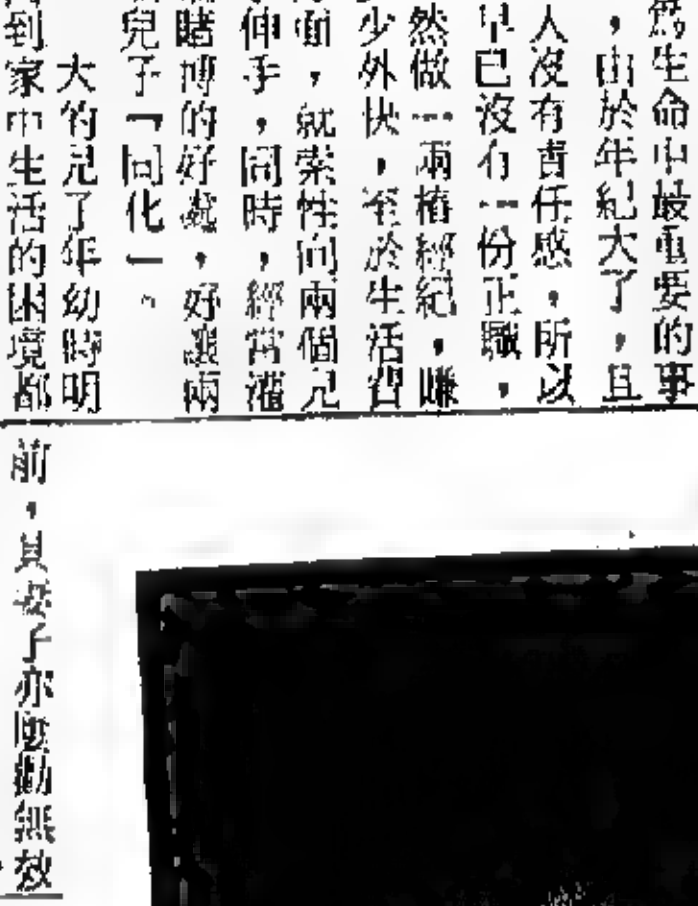 爲生命中最重要的事
，由於年紀大了，且
人沒有責任感，所以
早已沒有一份正職，
然做一兩樁經紀，賺
少外快，至於生活習
面，就索性向兩個兒
伸手，同時，經常灌
賭博的好處，好讓兩
兒子「同化」。
大的兒了年幼時明
到家中生活的困境都
前，其妻子亦屢勸無效